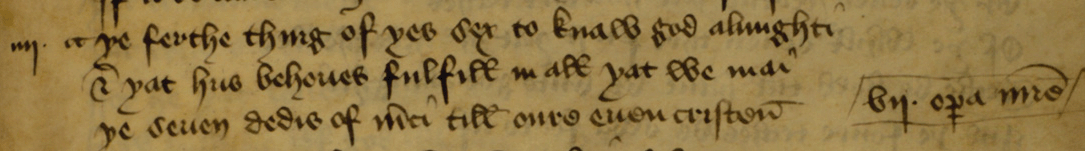 iiij. ye ferthe thing of yes sex to knaw god almighti
& yat hus behoues fulfill in all yat we mai
ye seuen dedis of m̄ci till oure euen cristen̄
vij. oꝑa mīe